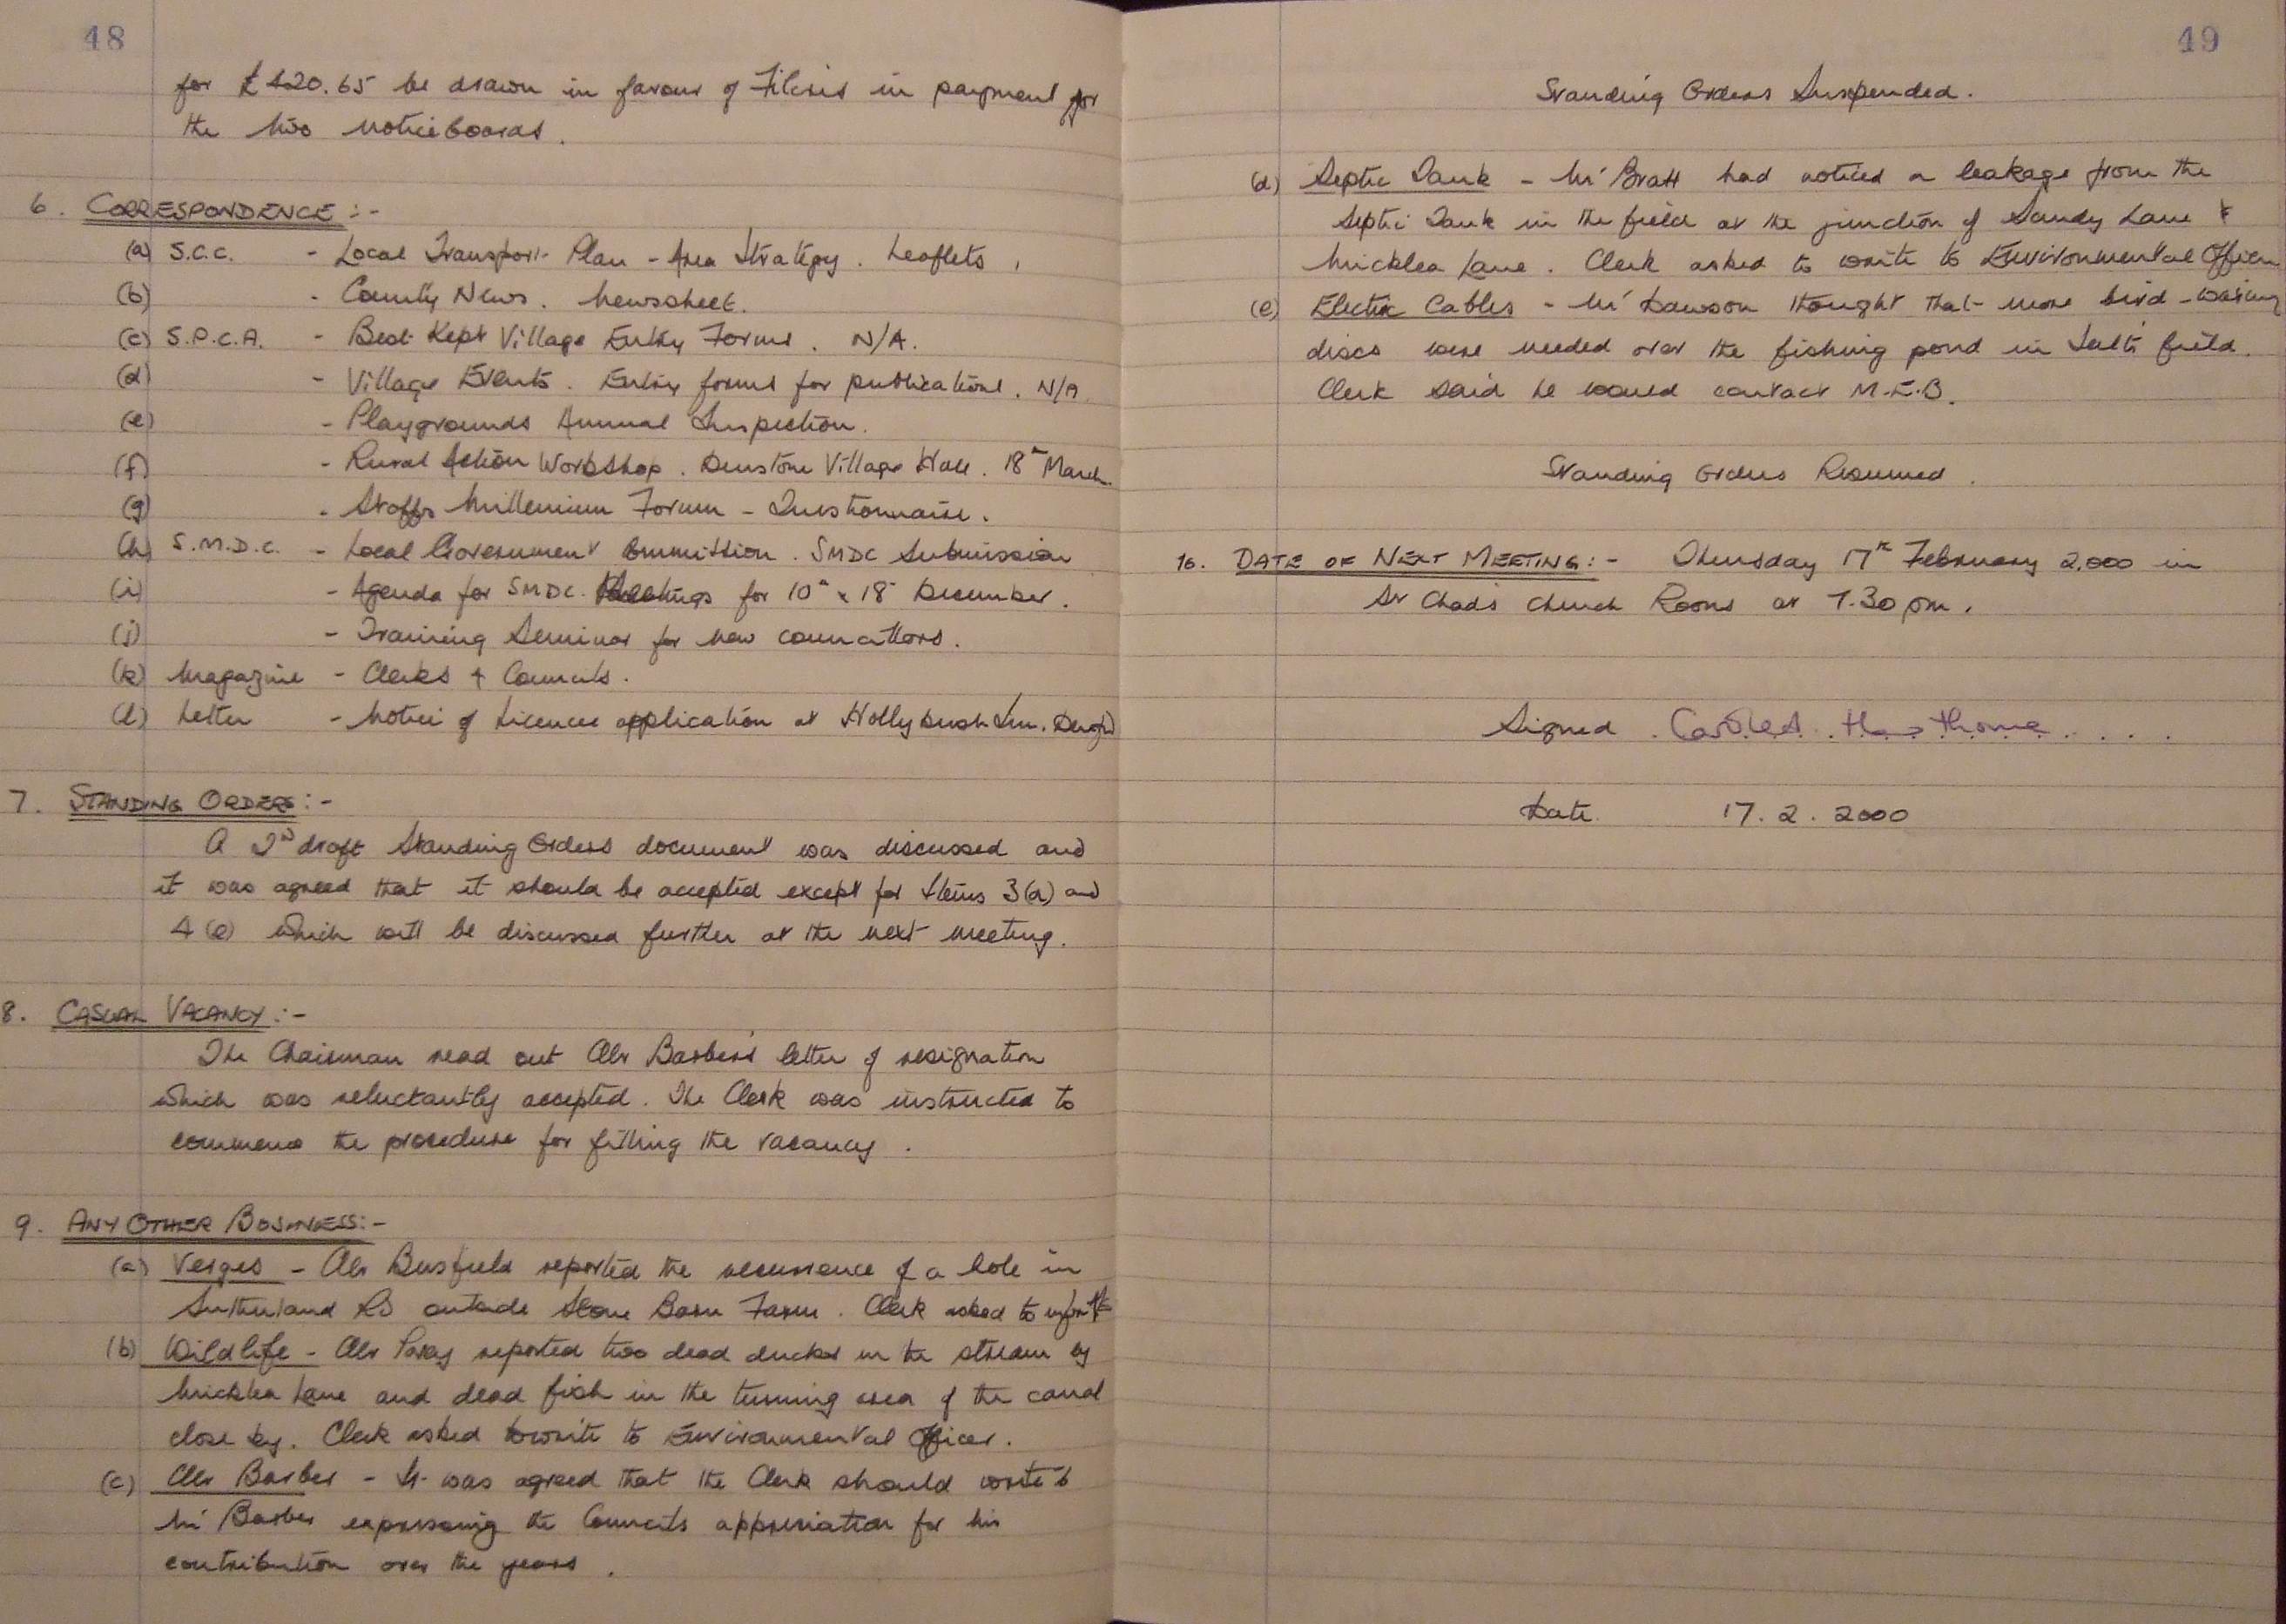 48
for £420.65 be drawn in favour of Filcris in payment for
the two noticeboards.
6. CORRESPONDENCE :-
(a) S.C.C. - Local Transport Plan - Area Strategy. Leaflets.
(b) - County News. Newsheet.
(c) S.P.C.A. - Best Kept Village Entry Forms. N/A.
(d) - Village Events. Entry forms for publications. N/A
(e) - Playgrounds Annual Inspection.
(f) - Rural Action Workshop. Denstone Village Hall. 18th March.
(g) - Staffs Millenium Forum - Questionnaire.
(h) S.M.D.C. - Local Government Commission. SMDC Submission
(i) - Agenda for SMDC. Meetings for 10th & 18th December.
(j) - Training Seminar for new councillors.
(k) Magazine - Clerks & Councils.
(l) Letter - Notice of Licence application at Hollybush Inn.
7. STANDING ORDERS :-
A 2nd draft Standing Orders document was discussed and
it was agreed that it should be accepted except for items 3(a) and
4(e) which will be discussed further at the next meeting.
8. CASUAL VACANCY :-
The Chairman read out Cllr Barber's letter of resignation
which was reluctantly accepted. The Clerk was instructed to
commence the procedure for filling the vacancy.
9. ANY OTHER BUSINESS :-
(a) Verges - Cllr Busfield reported the recurrence of a hole in
Sutherland Rd outside Stone Barn Farm. Clerk asked to
(b) Wildlife - Cllr reported two dead ducks in the stream by
Micklea Lane and dead fish in the turning area of the canal
close by. Clerk asked to write to Environmental Officer.
(c) Cllr Barber - It was agreed that the Clerk should write to
Mr Barber expressing the Councils appreciation for his
contribution over the years.
49
Standing Orders Suspended.
(d) Septic Tank - Mr Bratt had noticed a leakage from the
Septic Tank in the field at the junction of Sandy Lane &
Micklea Lane. Clerk asked to write to Environmental Officer
(e) Electric Cables - Mr Dawson thought that more bird-warning
discs were needed over the fishing pond in field.
Clerk said he would contact M.E.B.
Standing Orders Resumed.
10. DATE OF NEXT MEETING :- Thursday 17th February 2.000 in
St Chad's Church Rooms at 7.30pm.
Signed Hawthorne
Date 17.2.2000